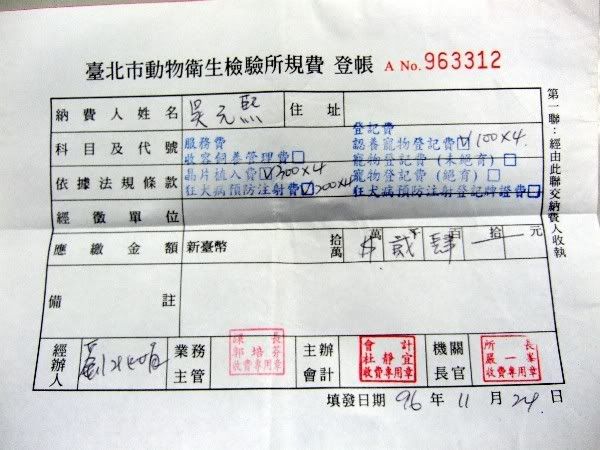 臺北市動物衛生檢驗所規費 登帳 A No. 963312
納費人姓名 吳元熙 住址
科目及代號
依據法規條款
服務費
收容飼養管理費□
晶片植入費☑300×4
狂犬病預防注射費☑200×4
登記費
認養寵物登記費☑100×4
寵物登記費(未絕育)□
寵物登記費(絕育)□
狂犬病預防注射登記牌證費☑
經徵單位
應繳金額 新臺幣 拾萬 萬 千 貳 百 肆 拾 元
備註
經辦人 業務主管 課長 郭培芬 收費專用章 主辦會計 會計 杜靜宜 收費專用章 機關長官 所長 嚴一峯 收費專用章
填發日期 96 年 11 月 24 日
第一聯:經由此聯交納費人收執